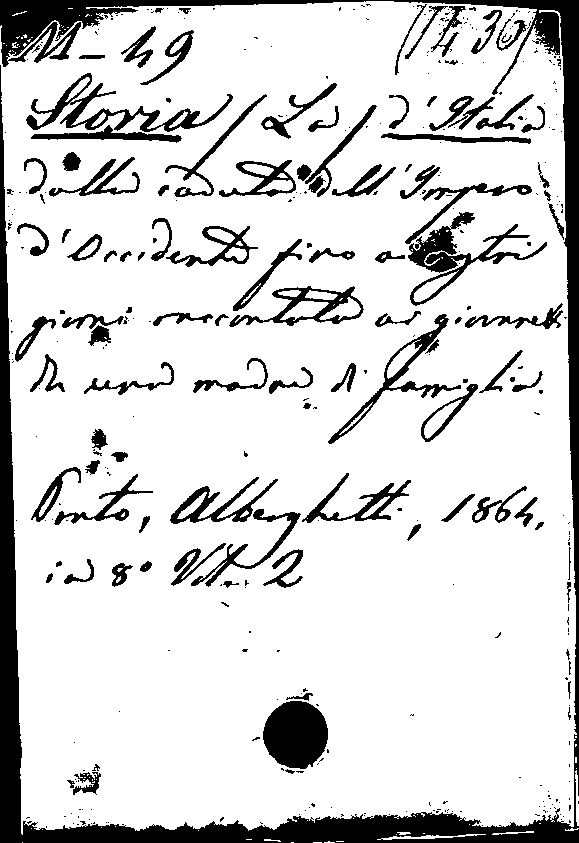 M-49 (1436)
Storia / La / d'Italia
dalla caduta dell'Impero
d'Occidente fino ai nostri
giorni raccontata ai giovanetti
da una madre di famiglia.
Prato, Alberghetti, 1864,
in 8° Vol. 2